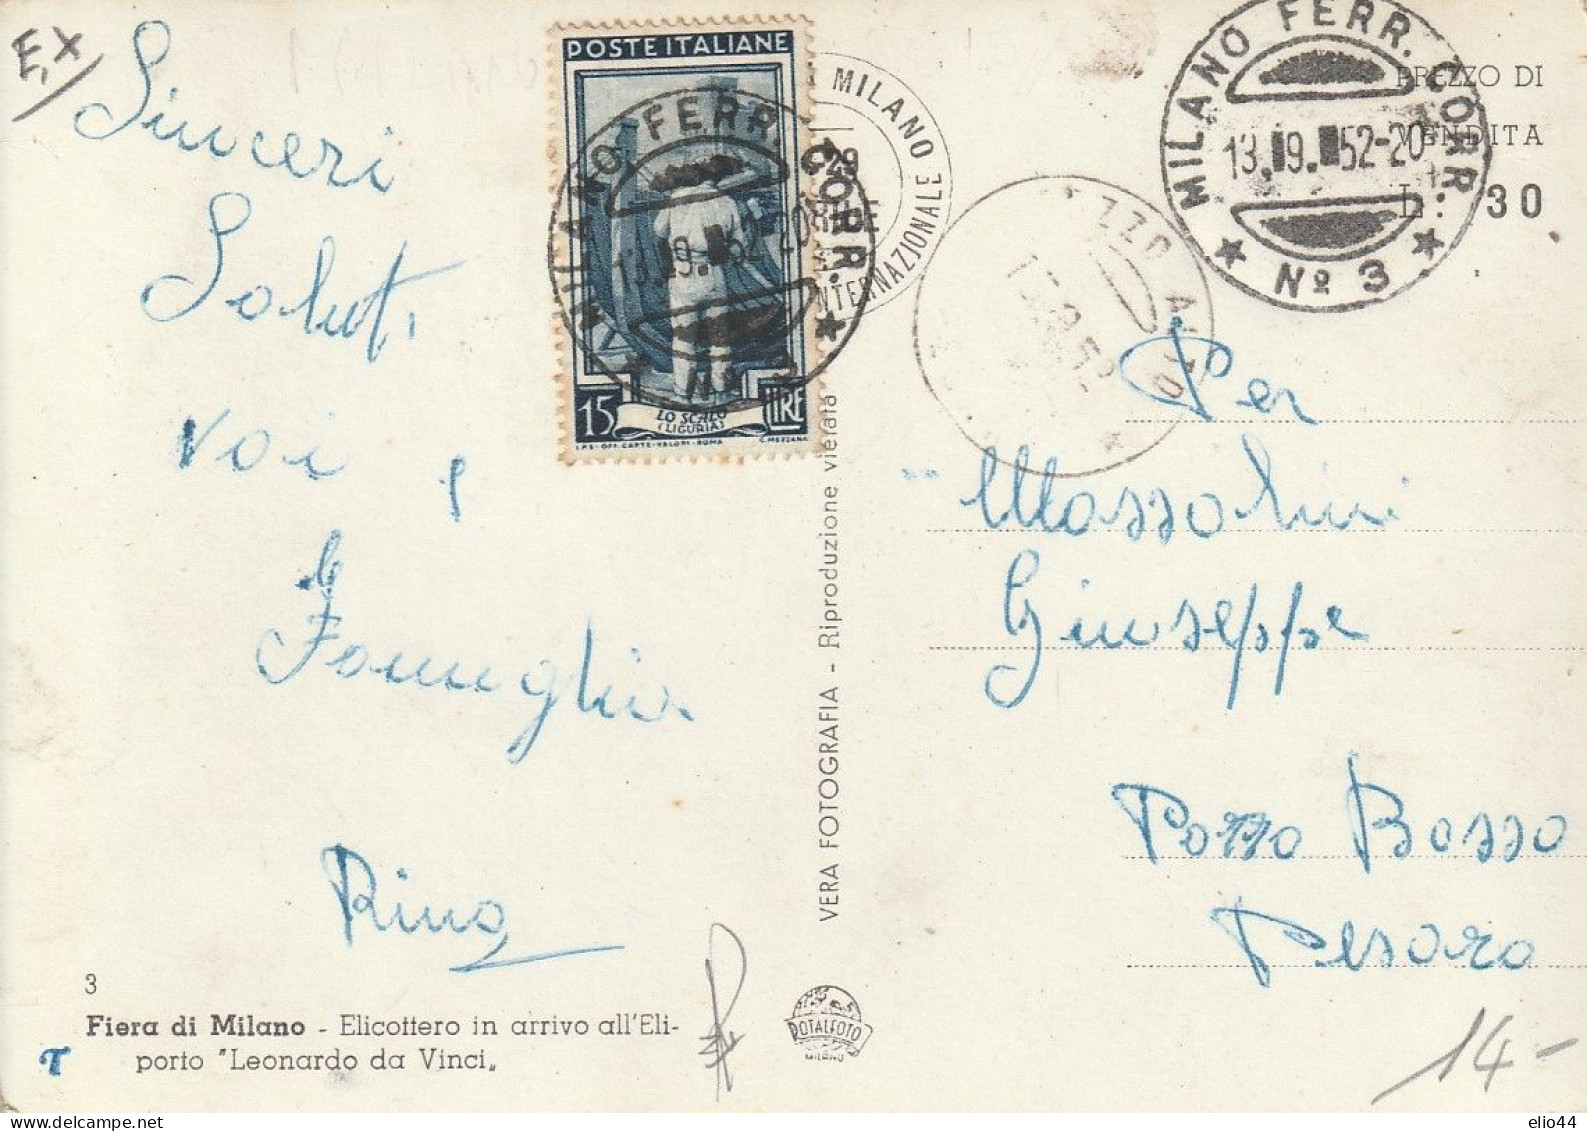 Ex
Sinceri
Saluti
voi e
Famiglia
Rino
3
Fiera di Milano - Elicottero in arrivo all'Eli-
porto "Leonardo da Vinci„
POSTE ITALIANE
15 LIRE
LO SCALO
(LIGURIA)
I.P.S-OFF. CARTE-VALORI-ROMA C. MEZZANA
MILANO FERR. CORR.
13. 9. 52-20
Nº 3
MILANO
29
INTERNAZIONALE
VERA FOTOGRAFIA - Riproduzione vietata
ROTALFOTO
MILANO
MILANO FERR. CORR.
13. 9. 52-20
Nº 3
PREZZO DI
VENDITA
L. 30
Per
Massolini
Giuseppe
Pozzo Basso
Pesaro
14-
T
elio44